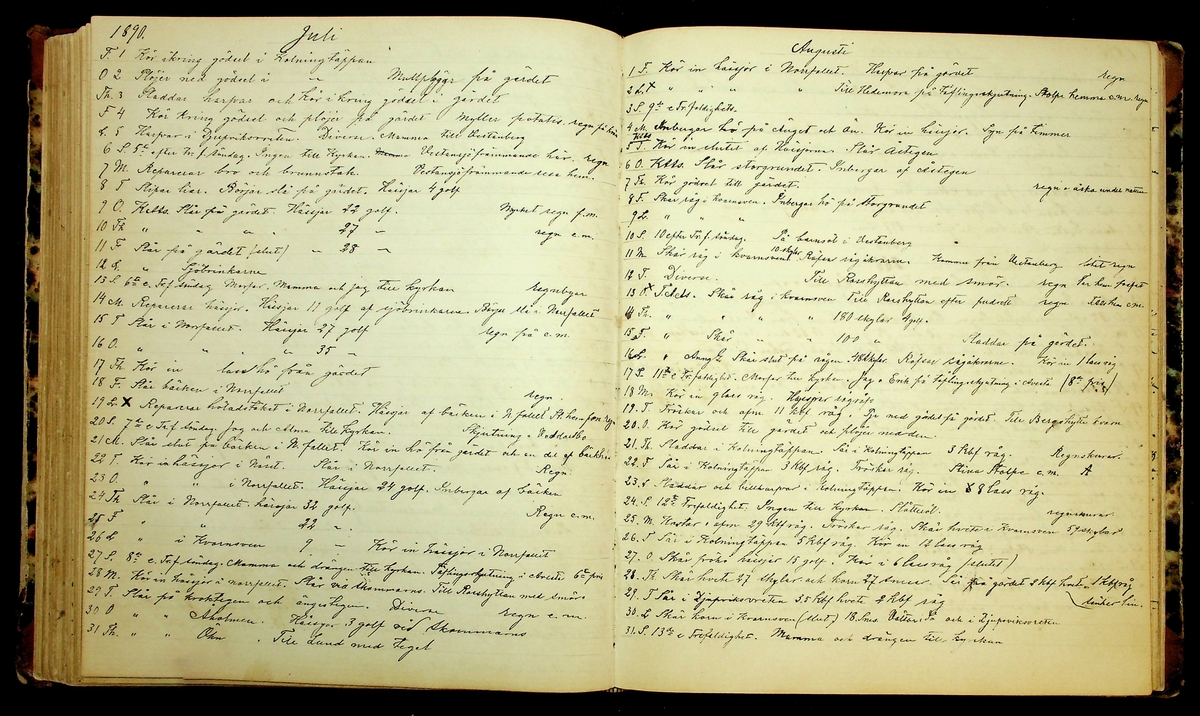 1890. Juli
T. 1 Kör ikring gödsel i Kolningtäppan
O 2. Plöjer ned gödsel i " Mullplöjer på gärdet
Th. 3 Sladdar harpar och kör ikring gödsel i gärdet
F 4 Kör kring gödsel och plöjer på gärdet Myller potates. regn på
L. 5 Harpar i Djupviksvreten. Diverse. Mamma till Vestenberg
6 S. 5te efter Tr.f. söndag. Ingen till Kyrkan. Vestansjöfrämmande här. regn
7 M. Reparerar bro och brunnstak. Vestansjöfrämmande resa hem.
8 T Slipar liar. Börjar slå på gärdet. Hässjar 4 golf
9 O. Ketts. Slår på gärdet. Hässjar 22 golf. Mycket regn f.m.
10 Th " " " " 27 – regn e.m.
11 F Slår på gärdet (slut) – 28 –
12 L. " Sjöbrinkarne
13 S. 6te e. Tr.f. söndag Morfar. Mamma och jag till Kyrkan regnbyar
14 M. Reparerar hässjor. Hässjar 11 golf af sjöbrinkarne. Börjar slå i Norrfallet
15 T Slår i Norrfallet. Hässjar 27 golf regn på e.m.
16 O. " " " 35 –
17 Th Kör in lass hö från gärdet
18 F. Slår bäcken i Norrfallet regn
19 L X Reparerar höladstaket i Norrfallet. Hässjar af bäcken i N.fallet
20 S. 7de e Tr.f. söndag. Jag och Alma till Kyrkan. Skjutning i Vaddarbo
21 M. Slår slut på bäcken i N.fallet. Kör in hö från gärdet och en del af bäcken
22 T. Kör in hässjor i Näset. Slår i Norrfallet. Regn.
23 O. " i Norrfallet. Hässjar 24 golf. Inbergar af bäcken
24 Th Slår i Norrfallet. hässjar 32 golf. Regn e.m.
25 F " " 22 –
26 L " i Kvarnsven 9 – Kör in hässjor i Norrfallet
27 S. 8de e. Tr.f. söndag. Mamma och drängen till Kyrkan. Täflingsskjutning i Avesta 6te pris
28 M. Kör in hässjor i norrfallet. Slår vid Skommarns. Till Rasshyttan med smör
29 T. Slår på Kroktegen och ängstegen. Diverse regn e.m.
30 O " " Aholmen. Hässjar 3 golf vid Skommarns
31 Th. " " Ökn. Till Lund med teget
Augusti
1 F. Kör in hässjor i Norrfallet. Harpar på gärdet regn
2 L X " " " " Till Hedemora på Täflingsskjutning. Stolpe hemma e.m. regn
3 S. 9de e Trefaldighets.
4 M. Inbergar hö på Änget och Ön. Kör in hässjor. Syn på timmer
5 T. Kör in slutet af hässjorna. Slår Åstegen
6 O. Ketts. Slår storgrundet. Inbergar af Åstegen
7 Th. Kör gödsel till gärdet. regn o åska under natten
8 F. Skär råg i kvarnsven. Inbergar hö på storgrundet
9 L. " " "
10 S. 10 efter Tr.f. söndag. På barnsöl i Vestanberg
11 M. Skär råg i kvarnsven 10 skylar Räfsar rågåkrarne. Komma från Vestanberg litet regn
12 T. Diverse. Till Rasshyttan med smör. regn
13 O. T.Ketts. Skär råg. kvarnsven Till Rasshyttan efter pudrett regn
14 Th. " " " " 180 skylar 4golf.
15 F. " Skär " " 100 " Sladdar på gärdet.
16 L " Skär slut på rågen Räfsar rågåkrarne. Kör in 1 lass råg
17 S. 11te e Trefaldighet. Morfar till kyrkan. Jag o Erik på Täflingsskjutning i Avesta (8de pris)
18 M. Kör in 9 lass råg. Hässjar
19 T. Tröskar och 11 kbf råg. Till Bergshytte kvarn
20 O. Kör gödsel till gärdet och plöjer ned den.
21 Th. Sladdar i Kolningtäppan. Sår i Kolningtäppan 3 Kbf råg. Regnskurar.
22 F Sår i Kolningtäppan 3 Kbf råg. Tröskar råg. Stina Stolpe e.m. A
23 L Sladdar och billharfvar i Kolningtäppan. Kör in 8 lass råg.
24 S. 12te Trefaldighet. Ingen till Kyrkan. Slåtteröl. regnskurar
25 M. Kastar i ofvn 29 Kbf råg. Tröskar råg. Skär hvete i Kvarnsven 54 skylar
26 T Sår i Kolningtäppan 5 Kbf råg. Kör in 12 lass råg
27 O. Skär hässjar 15 golf. Kör i 6 lass råg (slutet)
28 Th. Skär hvete 27 skylar och korn 27 Sneser. Sår på gärdet 2 Kbf hvete 1 Kbf råg
29 F Sår i Djupviksvreten 3.5 Kbf hvete 2 Kbf råg
30 L Skär korn i Kvarnsven (slut) 18 Snes. och i Djupviksvreten
31 S. 13de e Trefaldighet. Mamma och drängen till Kyrkan